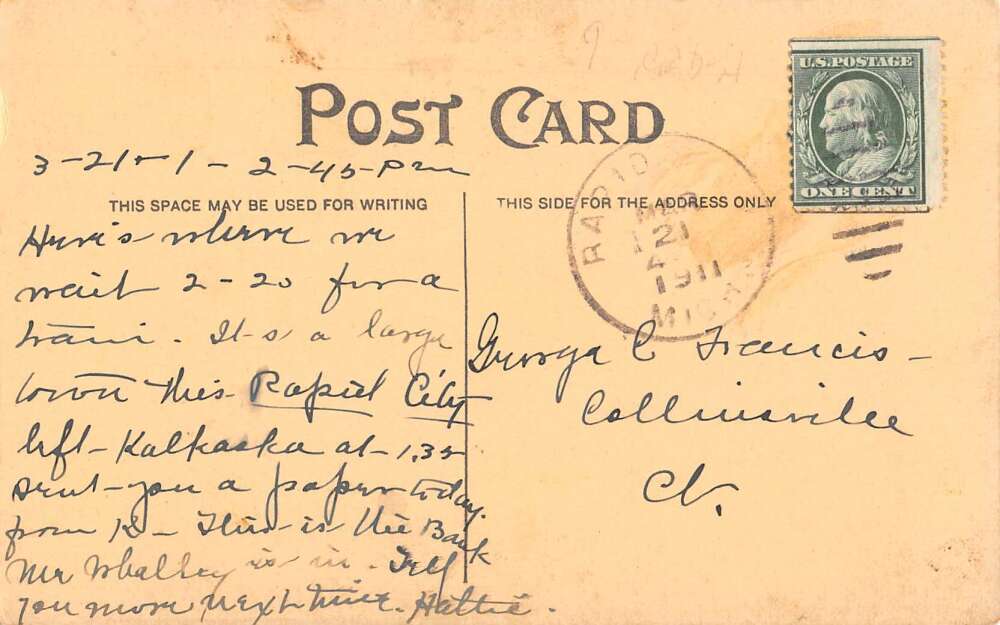 POST CARD
3-21-11- 2-45-Pm
THIS SPACE MAY BE USED FOR WRITING
THIS SIDE FOR THE ADDRESS ONLY
U.S. POSTAGE
ONE CENT
RAPID
MAR
21
1911
MICH
Here's where we
wait 2-20 for a
train. It-s a large
town this Rapid City
left-Kalkaska at-1.35
sent-you a paper today.
from K- This-is the Bank
Mr Whalley is in. Tell
you more next time. Hattie.
George C Francis-
Collinsville
Ct.